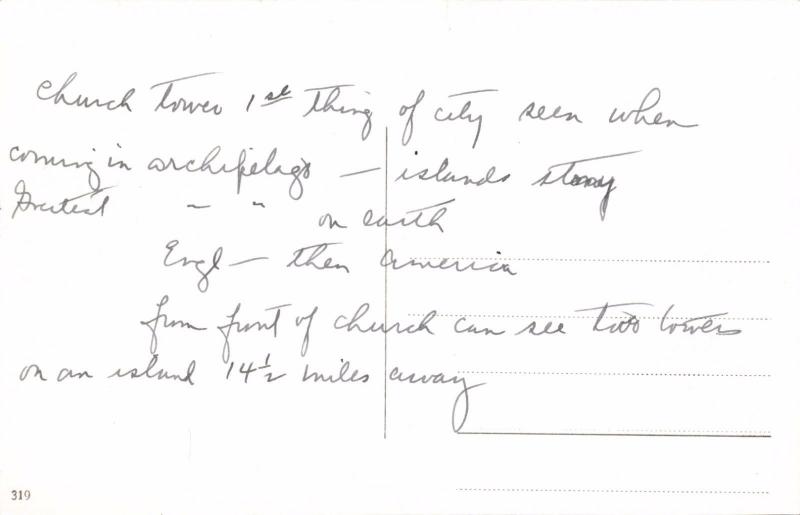 Church tower 1st thing of city seen when
coming in archipelago — islands stony
Greatest " " on earth
Engl — then America
from front of church can see two towers
on an island 14½ miles away
319